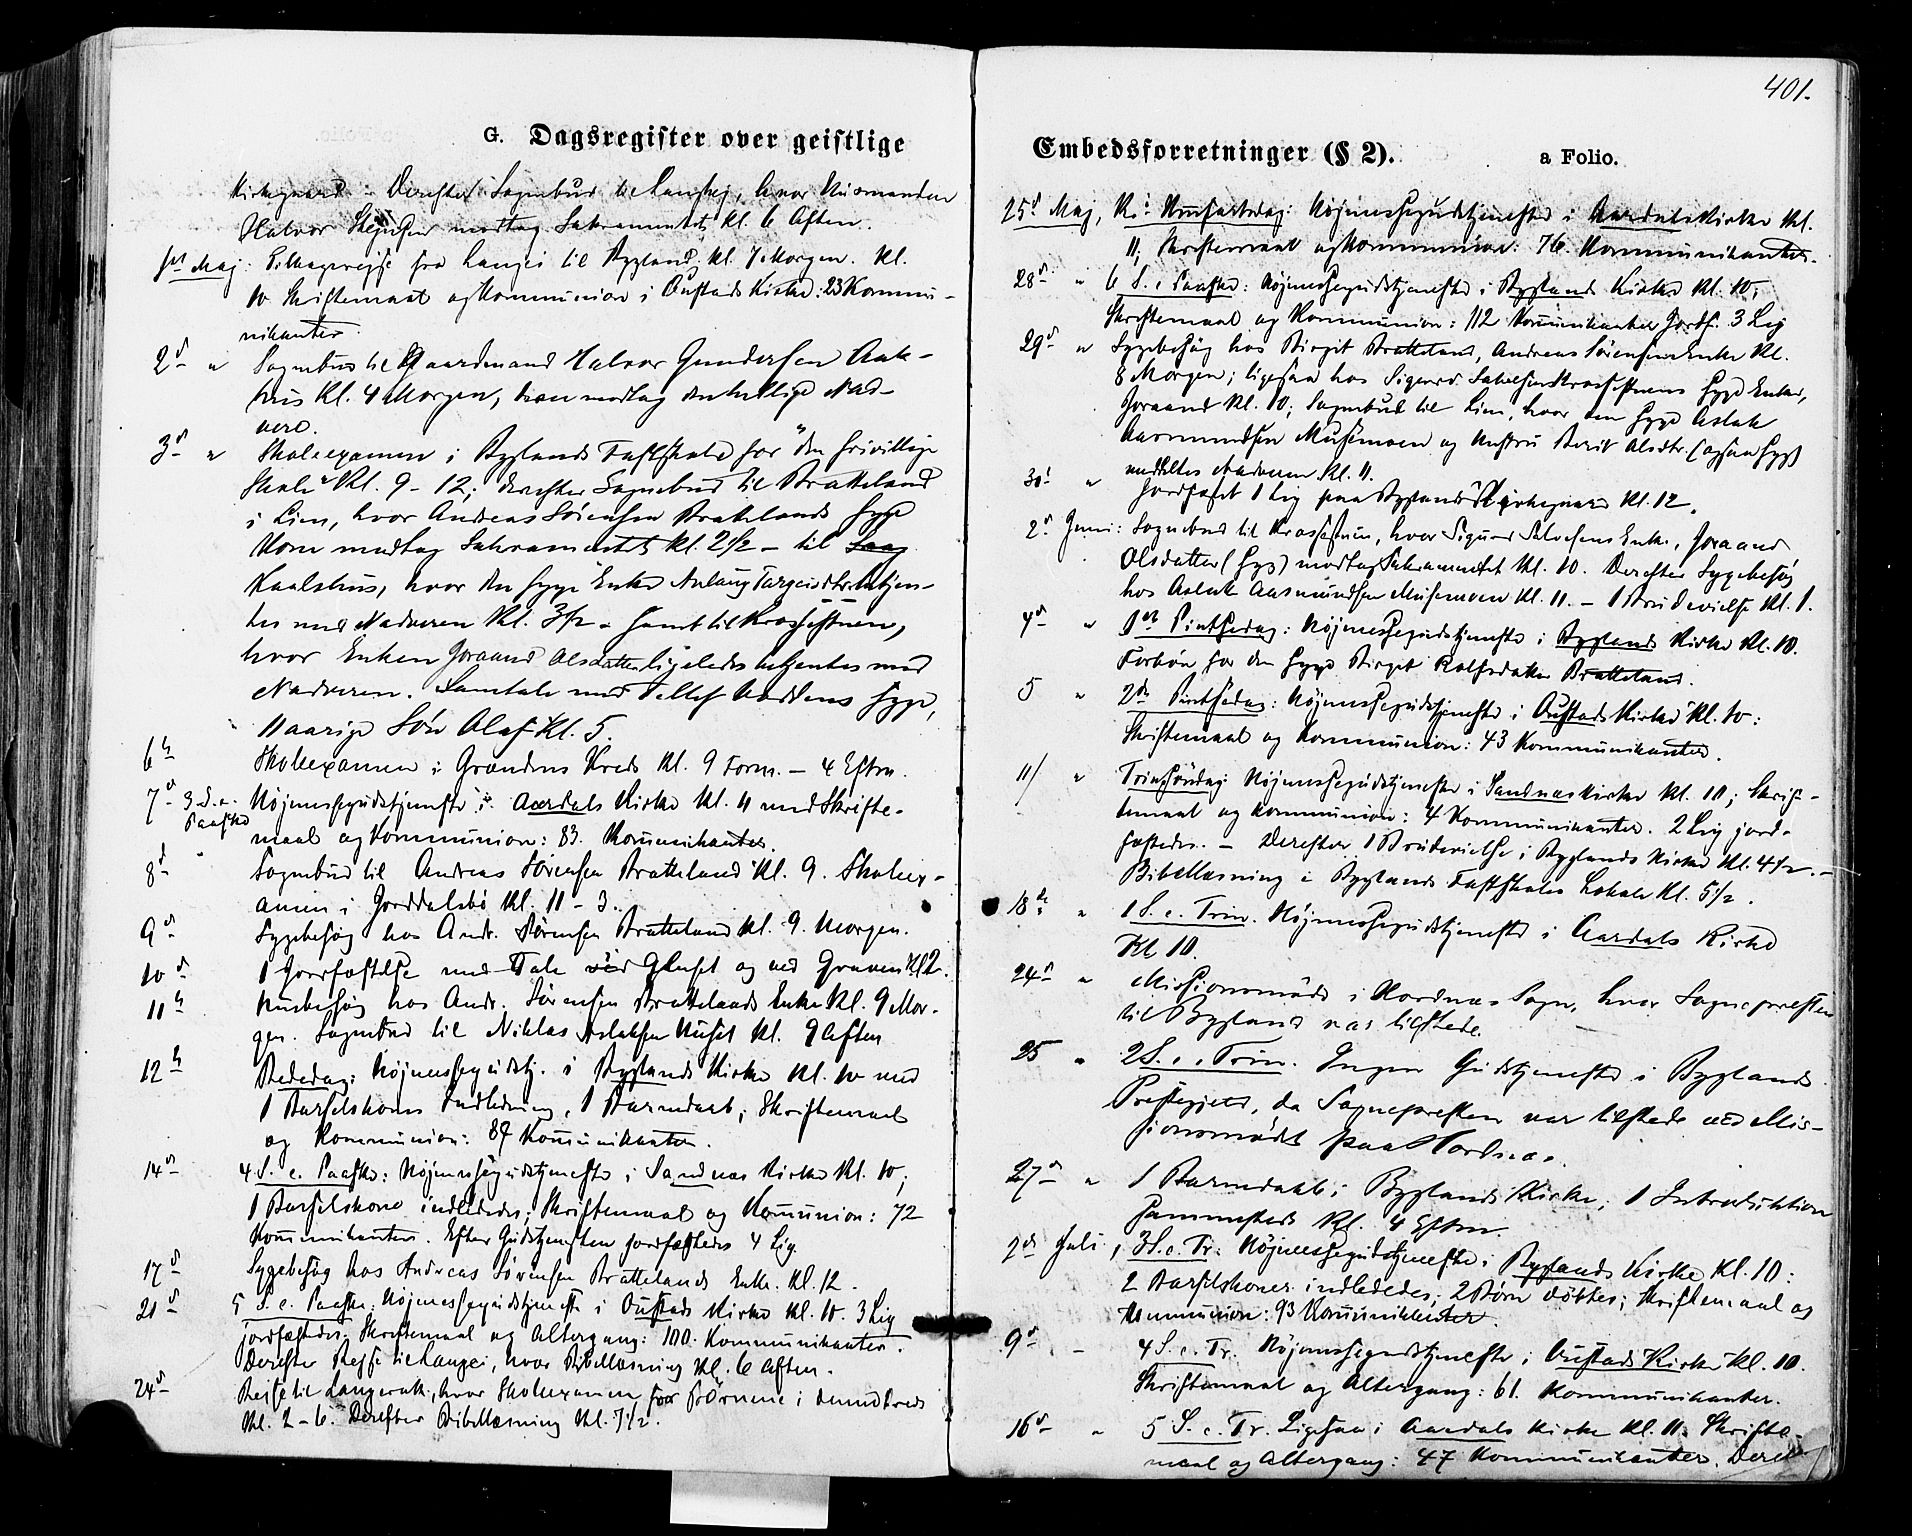 G. Dagsregister over geistlige
Kirkegaard. Derefter Sognebud til Langej, hvor Husmanden
Halvor mottog Sakramentet Kl. 6 Aften.
Maj: Tilbagerejse fra Langei til Bygland Kl. 7 Morgen. Kl.
10 Skriftemaal og Kommunion i Austads Kirke: 23 Kommu-
nikanter.
2d " Sognebud til Gaardmand Halvor Gundersen Aak-
hus Kl. 4 Morgen, han modtog den hellige Nad-
vere.
3d " Skoleexamen i Byglands Fastskole for "den frivillige
Skole" Kl. 9 - 12; derefter Sognebud til Bratteland
i Lien, hvor Andreas Sörensen Brattelands syge
Kone modtog Sakramentet Kl. 2 1/2 - til
Kaalshus, hvor den syge Enke Aslaug Targeisdtr. betjen-
tes med Nadveren Kl. 3 1/2 - samt til Krossestuen,
hvor Enken Joraand Olsdatter ligeledes betjentes med
Nadveren. Samtale med Tellef Voddens syge,
11 aarige Sön Olaf Kl. 5.
6te Skoleexamen i Grændens Kreds Kl. 9 Form. - 4 Eftm.
7d 3 S. e. Paaske Höjmessegudstjeneste i Aardals Kirke Kl. 11 med Skrifte-
maal og Kommunion: 83. Kommunikanter.
8d " Sognebud til Andreas Sörensen Bratteland Kl. 9. Skoleex-
amen i Jorddalsbö Kl. 11 - 3.
9d Sygebesög hos Andr. Sörensen Bratteland Kl. 9. Morgen.
10d 1 Jordfæstelse med Tale ved Huset og ved Graven Kl 2.
11te Husbesög hos Andr. Sörensen Brattelands Enke Kl. 9 Mor-
gen. Sognebud til Niklas Aslaksen Huset Kl. 9 Aften
12te Bededag: Höjmessegudstj. i Byglands Kirke Kl. 10 med
1 Barselskones Indledning, 1 Barnedaab; Skriftemaal
og Kommunion: 87 Kommunikanter.
14d 4 S. e. Paaske: Höjmessegudstjeneste i Sandnæs Kirke Kl. 10;
1 Barselskone indlededes; Skriftemaal og Kommunion: 72
Kommunikanter. Efter Gudstjenesten jordfæstedes 4 Lig.
17d Sygebesög hos Andreas Sörensen Brattelands Enke Kl. 12.
21d 5 S. e. Paaske: Höjmessegudstjeneste i Austads Kirke Kl. 10. 3 Lig
jordfæstedes; Skriftemaal og Altergang: 100. Kommunikanter.
Derefter Rejse til Langei, hvor Bibellæsning Kl. 6 Aften.
24d Rejse til Langerak, hvor Skoleexamen for Börnene i denne Kreds
Kl. 2 - 6. Derefter Bibellæsning Kl. 7 1/2.
401.
Embedsforretninger (§ 2). a Folio.
25d Maj, Kr. Himfartsdag: Höjmessegudstjeneste i Aardals Kirke Kl.
11; Skriftemaal og Kommunion: 76. Kommunikanter.
28d " 6 S. e Paaske: Höjmessegudstjeneste i Byglands Kirke Kl. 10;
Skriftemaal og Kommunion: 112 Kommunikanter Jordf. 3 Lig
29d " Sygebesög hos Birgit Bratteland, Andreas Sörensens Enke Kl.
8 Morgen; ligesaa hos Sigurd Salvesen Krossestuens syge Enke,
Joraand Kl. 10; Sognebud til Lien, hvor den syge Aslak
Aasmundsen Musemoen og Hustru Berit Alsdtr. (ogsaa syg)
meddeltes Nadveren Kl. 11.
30d " Jordfæstet 1 Lig paa Byglands Kirkegaard Kl. 12.
2d Juni: Sognebud til Krossestuen, hvor Sigurd Salvesens Enke, Joraand
Olsdatter (syg) modtog Sakramentet Kl. 10. Derefter Sygebesög
hos Aslak Aasmundsen Musemoen Kl. 11. - 1 Brudevielse Kl. 1.
4d " 1ste Pintsedag: Höjmessegudstjeneste i Byglands Kirke Kl. 10.
Forbön for den syge Birget Rolfsdatter Bratteland.
5 " 2den Pintsedag: Höjmessegudstjeneste i Austads Kirke Kl. 10:
Skriftemaal og Kommunion: 43 Kommunikanter.
11/ " Trin. Söndag: Höjmessegudstjeneste i Sandnæs Kirke Kl. 10; Skrif-
temaal og Kommunion: 4 Kommunikanter. 2 Lig jord-
fæstedes. - Derefter 1 Brudevielse i Byglands Kirke Kl. 4 1/2. -
Bibellæsning i Byglands Fastskoles Lokale Kl. 5 1/2.
18de " 1 S. e. Trin. Höjmessegudstjeneste i Aardals Kirke
Kl 10.
24d " Missionsmöde i Hordnæs Sogn, hvor Sognepresten
til Bygland var tilstede.
25 " 2 S. e. Trin. Ingen Gudstjeneste i Byglands
Prestegjeld, da Sognepresten var tilstede ved Mis-
sionsmödet paa Hordnæs.
27d " 1 Barnedaab i Byglands Kirke; 1 Introduktion
sammesteds Kl. 4 Eftm.
2den Juli, 3 S. e. Tr: Höjmessegudstjeneste i Byglands Kirke Kl. 10:
2 Barselskoner indlededes; 2 Börn döbtes; Skriftemaal og
Kommunion: 93 Kommunikanter.
9d - 4 S. e. Tr. Höjmessegudstjeneste i Austads Kirke Kl. 10.
Skriftemaal og Altergang: 61. Kommunikanter.
16d " 5 S. e. Tr. Ligesaa i Aardals Kirke Kl. 11. Skrifte-
maal og Altergang: 47 Kommunikanter. Deref